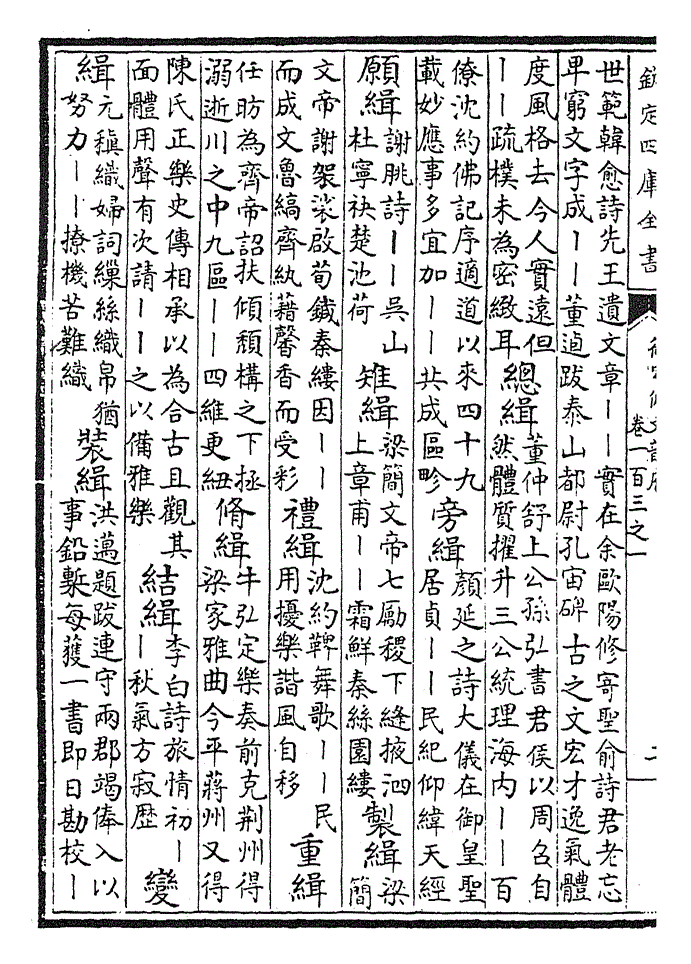 欽定四庫全書
御定佩文韻府
卷一百三之一
二
世範韓愈詩先王遺文章丨丨實在余歐陽修寄聖俞詩君老忘
卑窮文字成丨丨董逌跋泰山都尉孔宙碑 古之文宏才逸氣體
度風格去今人實遠但
丨丨疏樸未為密緻耳
總緝
董仲舒上公孫弘書君侯以周召自
然體質擢升三公統理海内丨丨百
僚沈約佛記序適道以來四十九
載妙應事多宜加丨丨共成區畛
旁緝
顔延之詩大儀在御皇聖
居貞丨丨民紀仰緯天經
願緝
謝朓詩丨丨吳山
杜寧袂楚池荷
雉緝
梁簡文帝七勵稷下縫掖泗
上章甫丨丨霜鮮秦絲園縷
製緝
梁
簡
文帝謝袈裟啟荀鍼秦縷因丨丨
而成文魯縞齊紈藉馨香而受彩
禮緝
沈約鞞舞歌丨丨民
用擾樂諧風自移
重緝
任昉為齊帝詔扶傾頽構之下拯
溺逝川之中九區丨丨四維更紐
脩緝
牛弘定樂奏前克荆州得
梁家雅曲今平蔣州又得
陳氏正樂史傳相承以為合古且觀其
面體用聲有次請丨丨之以備雅樂
結緝
李白詩旅情初丨
丨秋氣方寂歴
變
緝
元稹織婦詞繅絲織帛猶
努力丨丨撩機苦難織
裝緝
洪邁題跋連守兩郡竭俸入以
事鉛槧每獲一書即日勘校丨